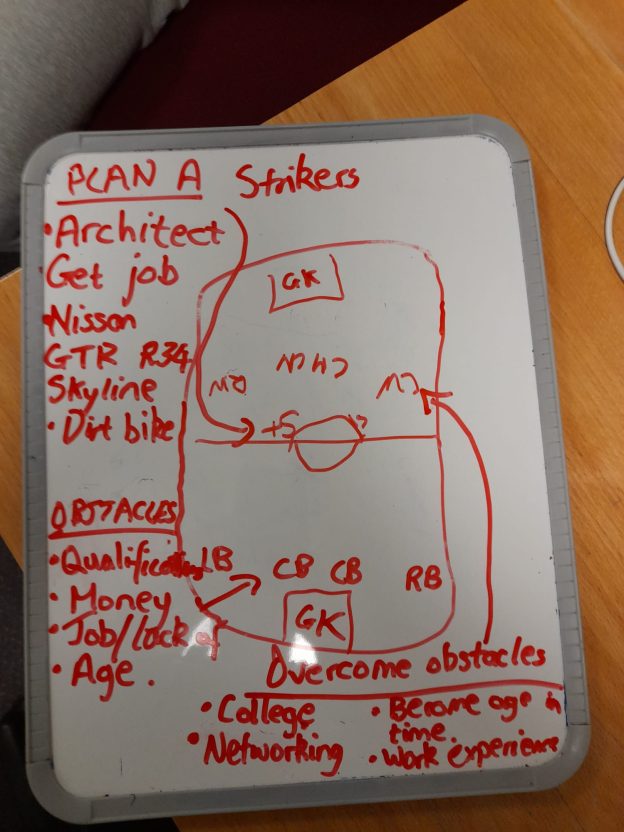 PLAN A Strikers
• Architect
Get job
Nissan
GTR R34
Skyline
• Dirt bike
GK
CM
+S
OBSTACLES
• Qualifications
• Money
• Job/lack of
• Age.
LB CB CB RB
GK
Overcome obstacles
• College
• Networking
• Become age in
time.
• Work experience